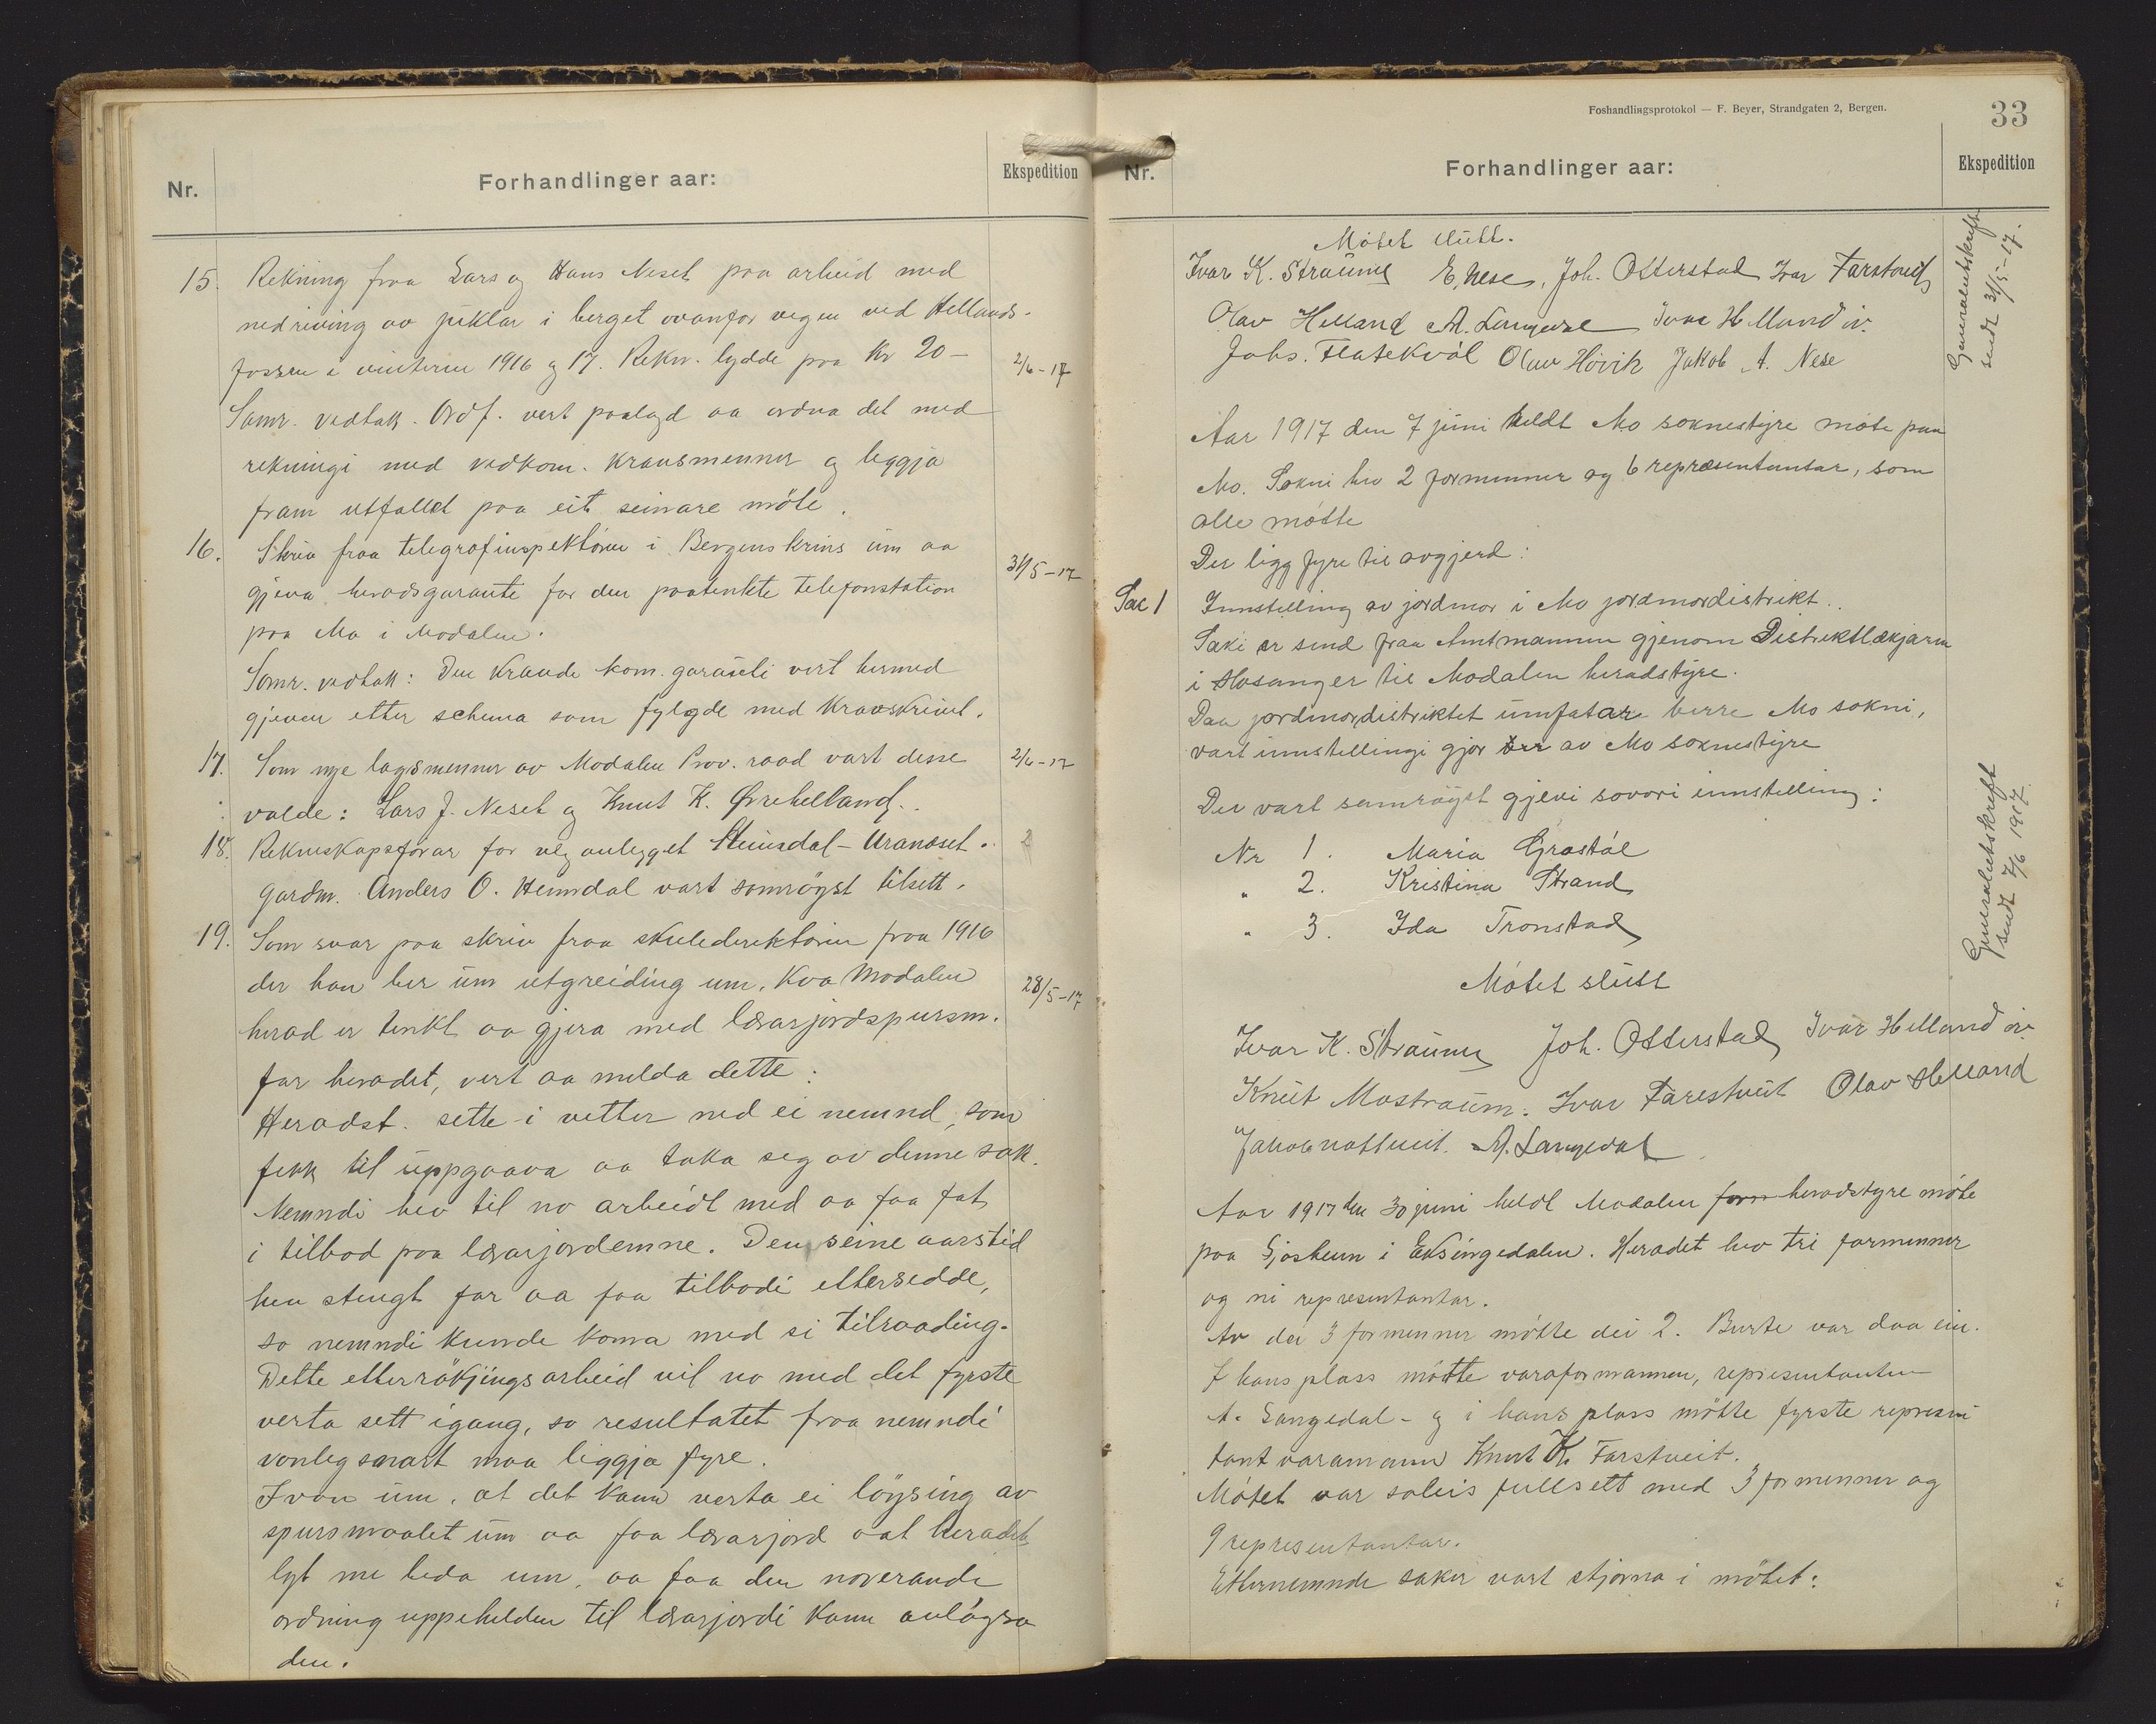 Nr.
Forhandlinger aar:
Ekspedition
15. Rekning fraa Lars og Hans Neset paa arbeid med
nedriving av jüklar i berget ovanfor vegen ved Hellands-
fossen i vinteren 1916 og 17. Rekn. lydde paa kr 20 –
2/6 – 17
Samr. vedtak. Ordf. vert paalagd aa ordna det med
rekningi med vedkom. kravsmenner og leggja
fram utfallet paa eit seinare möte.
16. Skriv fraa telegrafinspektören i Bergenskrins üm aa
gjeva heradsgarante for den paatenkte telefonstation
31/5 – 17
paa Mo i Modalen.
Samr. vedtak: Den kravde kom. garanti vert hermed
gjeven etter schema som fylgde med kravskrivet.
17. Som nye lagsmenner av Modalen Prov. raad vart desse
2/6 – 17
valde: Lars J. Neset og Knut K. Øvrehelland.
18. Rekneskapsförar for veganlegget Steinsdal – Uranæset.
2
Gardm. Anders O. Hemdal vart samröyst tilsett.
19. Som svar paa skriv fraa skuledirektören fraa 1916
der han ber üm utgreiding um, kva Modalen
28/5 – 17
herad er tenkt aa gjera med lærarjordspursm.
for heradet, vert aa melda dette:
Heradst. sette i vetter ned ei nemnd, som
fekk til üppgaava aa taka seg av denne sak.
Nemndi hev til no arbeidt med aa faa fat
i tilbod paa lærarjordemne. Den seine aarstid
hev stengt for aa faa tilbodi ettersedde,
so nemndi kunde koma med si tilraading.
Dette etterrökjingsarbeid vil no med det fyrste
verta sett igang, so resultatet fraa nemndi
vonleg snart maa liggja fyre.
I von üm, at det kann verta ei löysing av
spursmaalet üm aa faa lærarjord aat heradet
lyt me beda um, aa faa den noverande
ordning uppehelden til lærarjordi kann avlöysa
den.
Foshandlingsprotokol — F. Beyer, Strandgaten 2, Bergen.
33
Nr.
Forhandlinger aar:
Ekspedition
Mötet slütt.
Ivar K. Straüme E. Nese, Joh. Otterstad Ivar Farstveit
Olav Helland A. Langedal Ivar Helland
Johs. Flatekvål Olav Hövik Jakob A. Nese
Generalutskrift
sendt 31/5 – 17.
Aar 1917 den 7 jüni heldt Mo soknestyre möte paa
Mo. Sokni hev 2 formenner og 6 repræsentantar, som
alle mötte
Der ligg fyre til avgjerd:
Sac 1 Innstelling av jordmor i Mo jordmordistrikt.
Saki er send fraa Amtmannen gjenom Distriktlækjaren
i Hosanger til Modalen heradstyre.
Daa jordmordistriktet ümfatar berre Mo sokni,
vart innstellingi gjor av Mo soknestyre
Der vart samröyst gjevi sovori innstelling:
Nr 1. Maria Gråstål
" 2. Kristina Strand
" 3. Ida Tronstad
Generalutskrift
sendt 7/6 1917
Mötet slütt
Ivar K. Straüme Joh. Otterstad Ivar Helland
Knüt Mostraüm. Ivar Farestveit Olav Helland
Jakob Nottveit. A. Langedal
Aar 1917 den 30 juni heldt Modalen form heradstyre möte
paa Sjosheim i Eksingedalen. Heradet hev tri formenner
og ni representantar.
Av dei 3 formenner mötte dei 2. Burte var daa ein.
I hans plass mötte varaformannen, representanten
A. Langedal – og i hans plass mötte fyrste represen
tant varamann Knut K. Farstveit.
Mötet var soleis fullsett med 3 formenner og
9 representantar.
Etternemnde saker vart stjorna i mötet: